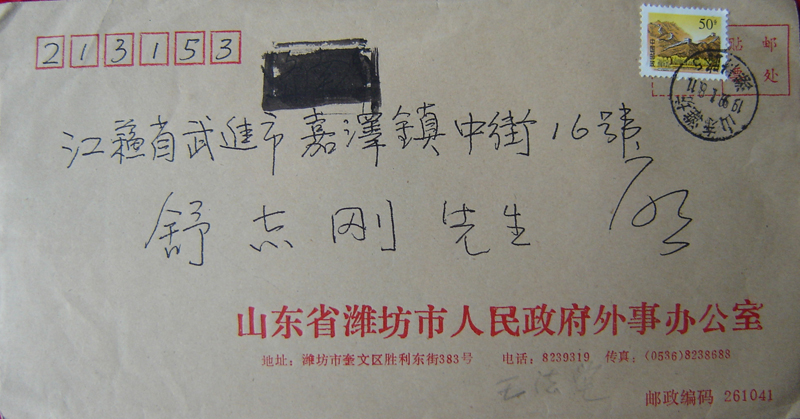 213153
50分
贴 邮
处
山东潍坊
江蘇省武進市嘉澤鎮中街16號
舒志刚 先生 启
山东省潍坊市人民政府外事办公室
地址：潍坊市奎文区胜利东街383号 电话：8239319 传真：(0536)8238688
邮政编码 261041